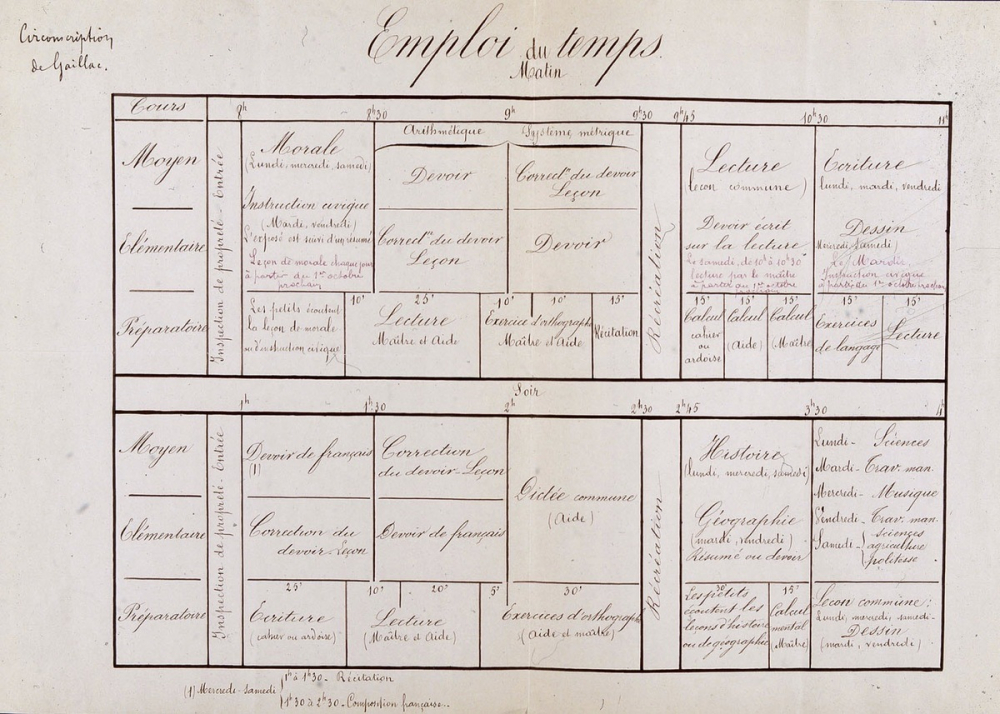 Circonscription
de Gaillac.
Emploi du temps.
Matin
Cours
8h 8h30 9h 9h30 9h45 10h30 11h
Moyen
Elémentaire
Préparatoire
Inspection de propreté - Entrée
Morale
(Lundi, mercredi, samedi)
Instruction civique
(Mardi, vendredi)
L'exposé est suivi d'un résumé
Leçon de morale chaque jour
à partir du 1er octobre
prochain
Les petits écoutent
la leçon de morale
ou d'instruction civique
10'
Arithmétique
Système métrique
Devoir
Correct.on du devoir
Leçon
Correct.on du devoir
Leçon
Devoir
25'
Lecture
Maître et Aide
10' 10'
Exercice d'orthographe
Maître et Aide
15'
Récitation
Récréation
Lecture
(leçon commune)
Devoir écrit
sur la lecture
Le samedi, de 10h à 10h30
lecture par le maître
à partir du 1er octobre
15'
Calcul
cahier
ou
ardoise
15'
Calcul
(Aide)
15'
Calcul
(Maître)
Ecriture
lundi, mardi, vendredi
Dessin
Mercredi, Samedi)
Le Mardi,
Instruction civique
à partir du 1er octobre prochain
15'
Exercices
de langage
15'
Lecture
Soir
1h 1h30 2h 2h30 2h45 3h30 4h
Moyen
Elémentaire
Préparatoire
Inspection de propreté - Entrée
Devoir de français
(1)
Correction du
devoir - Leçon
25'
Ecriture
(cahier ou ardoise)
Correction
du devoir - Leçon
Devoir de français
10' 20' 5'
Lecture
(Maître et Aide)
Dictée commune
(Aide)
30'
Exercices d'orthographe
(Aide et maître)
Récréation
Histoire
(lundi, mercredi, samedi)
Géographie
(mardi, vendredi)
Résumé ou devoir
30'
Les petits
écoutent les
leçons d'histoire
ou de géographie
15'
Calcul
mental
(Maître)
Lundi - Sciences
Mardi - Trav. man.
Mercredi - Musique
Vendredi - Trav. man.
Samedi - { sciences
agriculture
politesse
Leçon commune:
Lundi, mercredi, samedi.
Dessin
(mardi, vendredi)
(1) Mercredi - Samedi { 1h à 1h30 - Récitation
1h30 à 2h30 - Composition française.